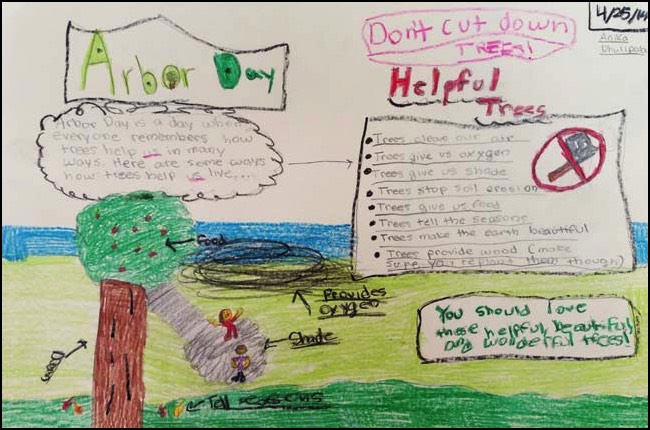 Arbor Day
Don't cut down
TREES!
4/25/14
Anika
Dhulipala
Helpful
Trees
Arbor Day is a day when
everyone remembers how
trees help us in many
ways. Here are some ways
how trees help us live,...
Trees clean our air
Trees give us oxygen
Trees give us shade
Trees stop soil erosion
Trees give us food
Trees tell the seasons
Trees make the earth beautiful
Trees provide wood (make
sure you replant them though)
Food
Provides
oxygen
Shade
Tell seasons
You should love
these helpful, beautiful,
and wonderful trees!